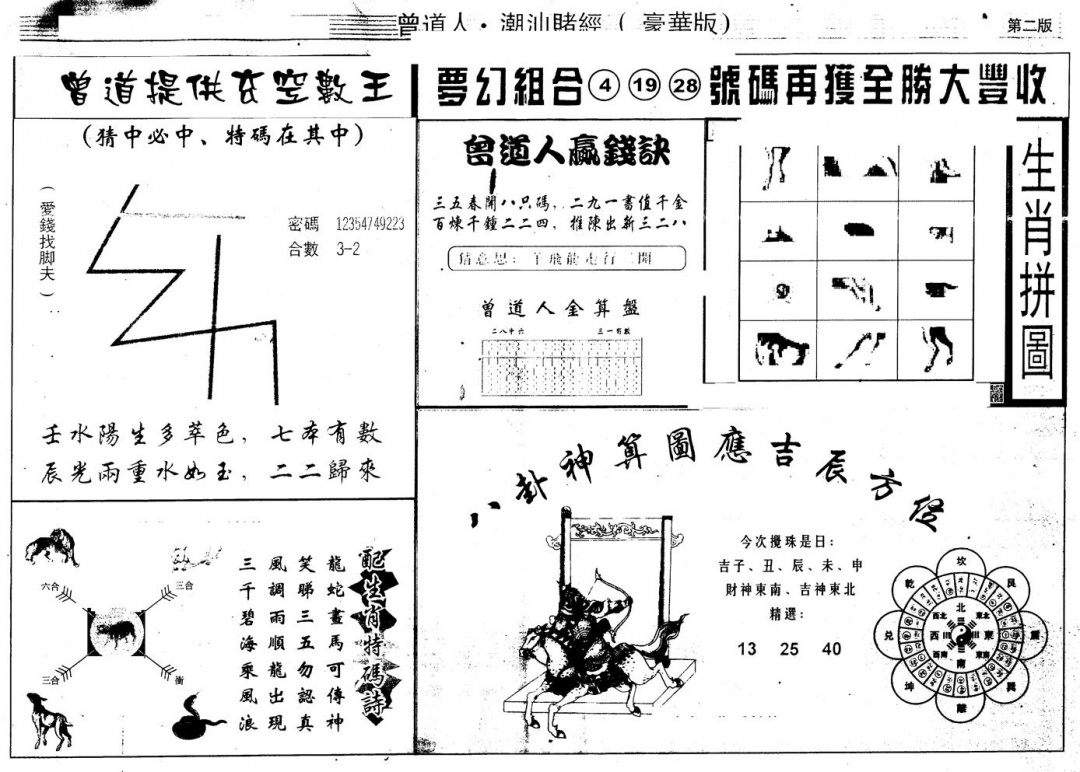 曾道人·潮汕賭經（豪華版）
第二版
曾道提供玄空數王
夢幻組合④⑲㉘號碼再獲全勝大豐收
(猜中必中、特碼在其中)
(愛錢找脚夫)
密碼 12354749223
合數 3-2
壬水陽生多萃色，七本有數
辰光兩重水如玉，二二歸來
曾道人贏錢訣
三五春開八只碼，二九一書值千金
百煉千鍾二二四，推陳出新三二八
猜意思：羊飛龍走行二開
曾道人金算盤
二八中六
生肖拼圖
配生肖特碼詩
龍蛇畫馬可傳神
笑睇三五勿認真
風調雨順龍出現
三千碧海乘風浪
六合
三合
三合
衝
八卦神算圖應吉辰方位
今次攪珠是日：
吉子、丑、辰、未、申
財神東南、吉神東北
精選：
13 25 40
坎
艮
震
巽
離
坤
兑
乾
北
東北
東
東南
南
西南
西
西北